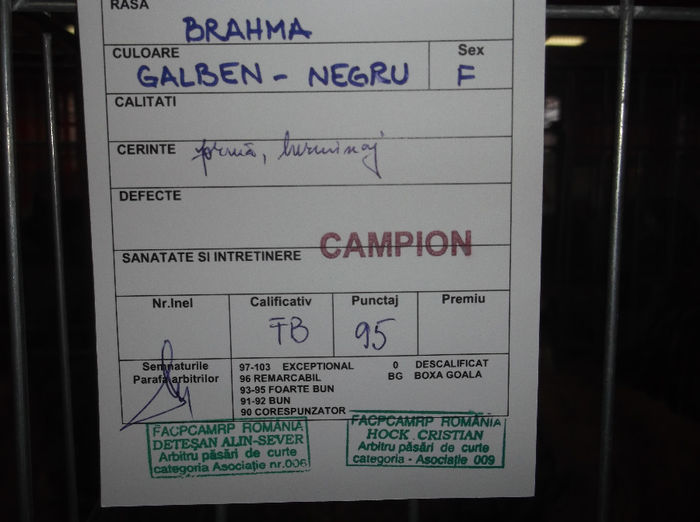 RASA BRAHMA
CULOARE Sex
GALBEN - NEGRU F
CALITATI
CERINTE
DEFECTE
CAMPION
SANATATE SI INTRETINERE
Nr.Inel Calificativ Punctaj Premiu
FB 95
Semnaturile
Parafa arbitrilor
97-103 EXCEPTIONAL 0 DESCALIFICAT
96 REMARCABIL BG BOXA GOALA
93-95 FOARTE BUN
91-92 BUN
90 CORESPUNZATOR
FACPCAMRP ROMÂNIA
DETEŞAN ALIN-SEVER
Arbitru păsări de curte
categoria Asociaţie nr.006
FACPCAMRP ROMÂNIA
HOCK CRISTIAN
Arbitru păsări de curte
categoria - Asociatie 009